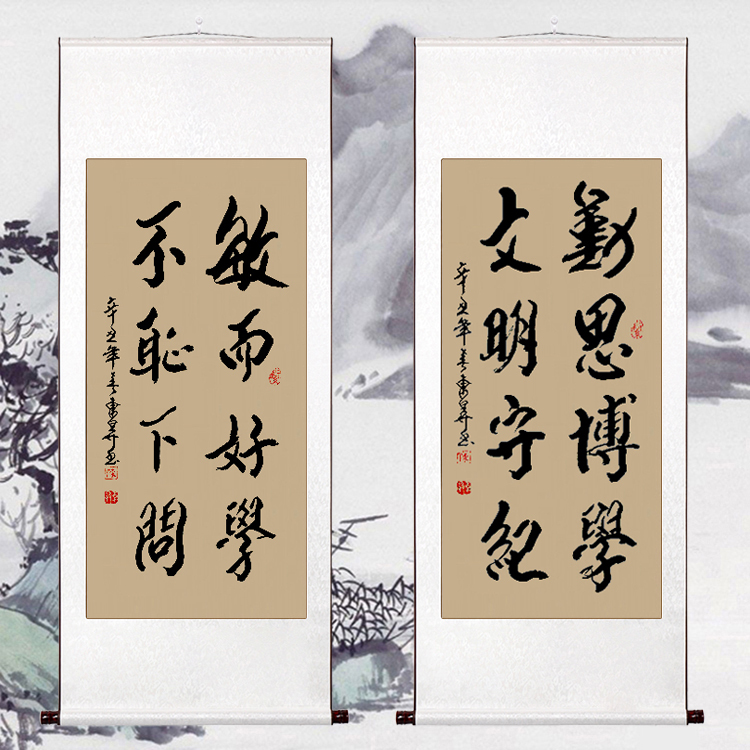 勤思博學
文明守紀
辛丑年
敏而好學
不恥下問
辛丑年